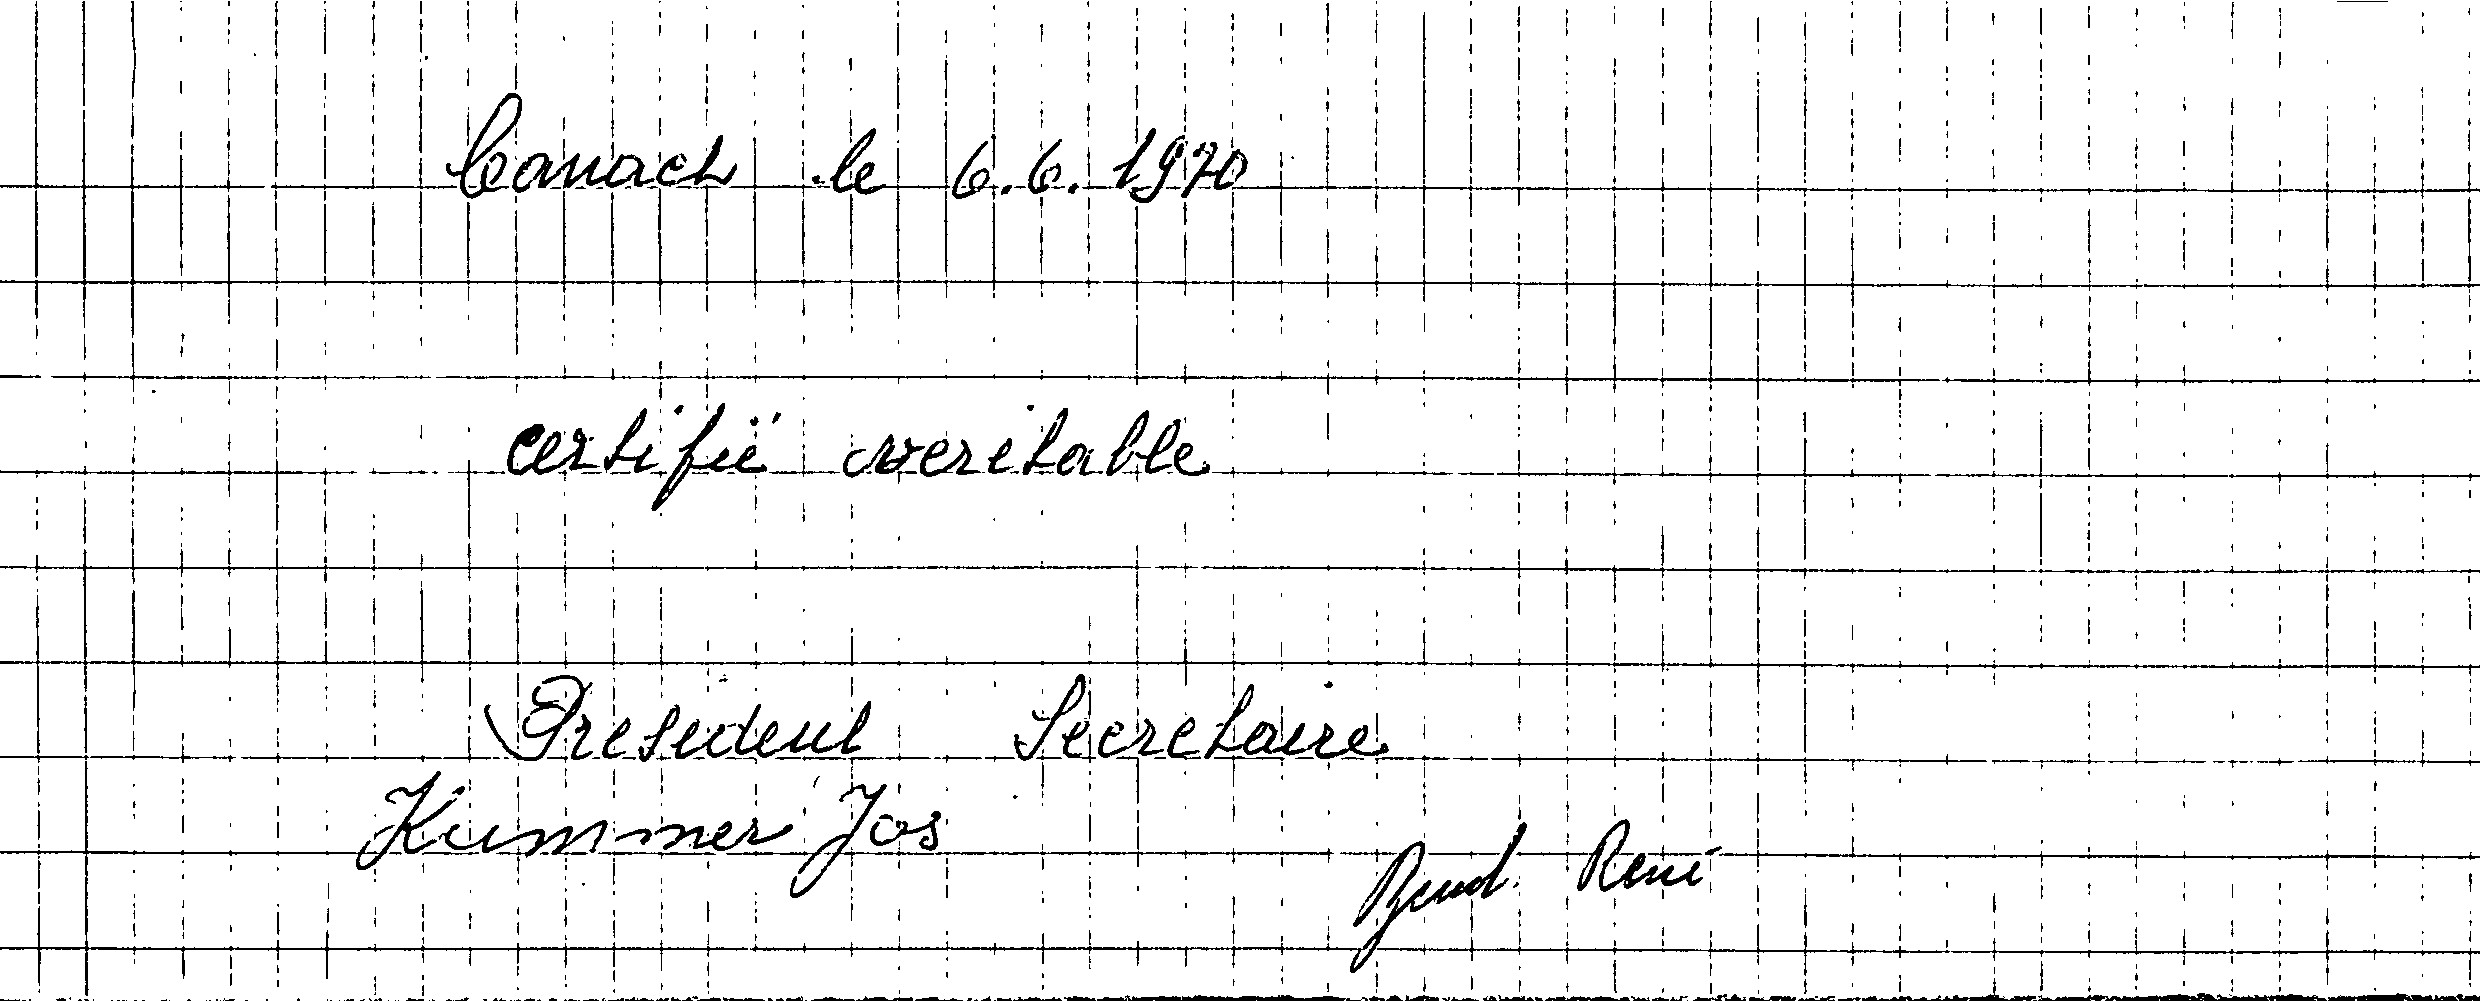 Canach le 6.6.1970
certifié veritable
President Secretaire
Kummer Jos
René